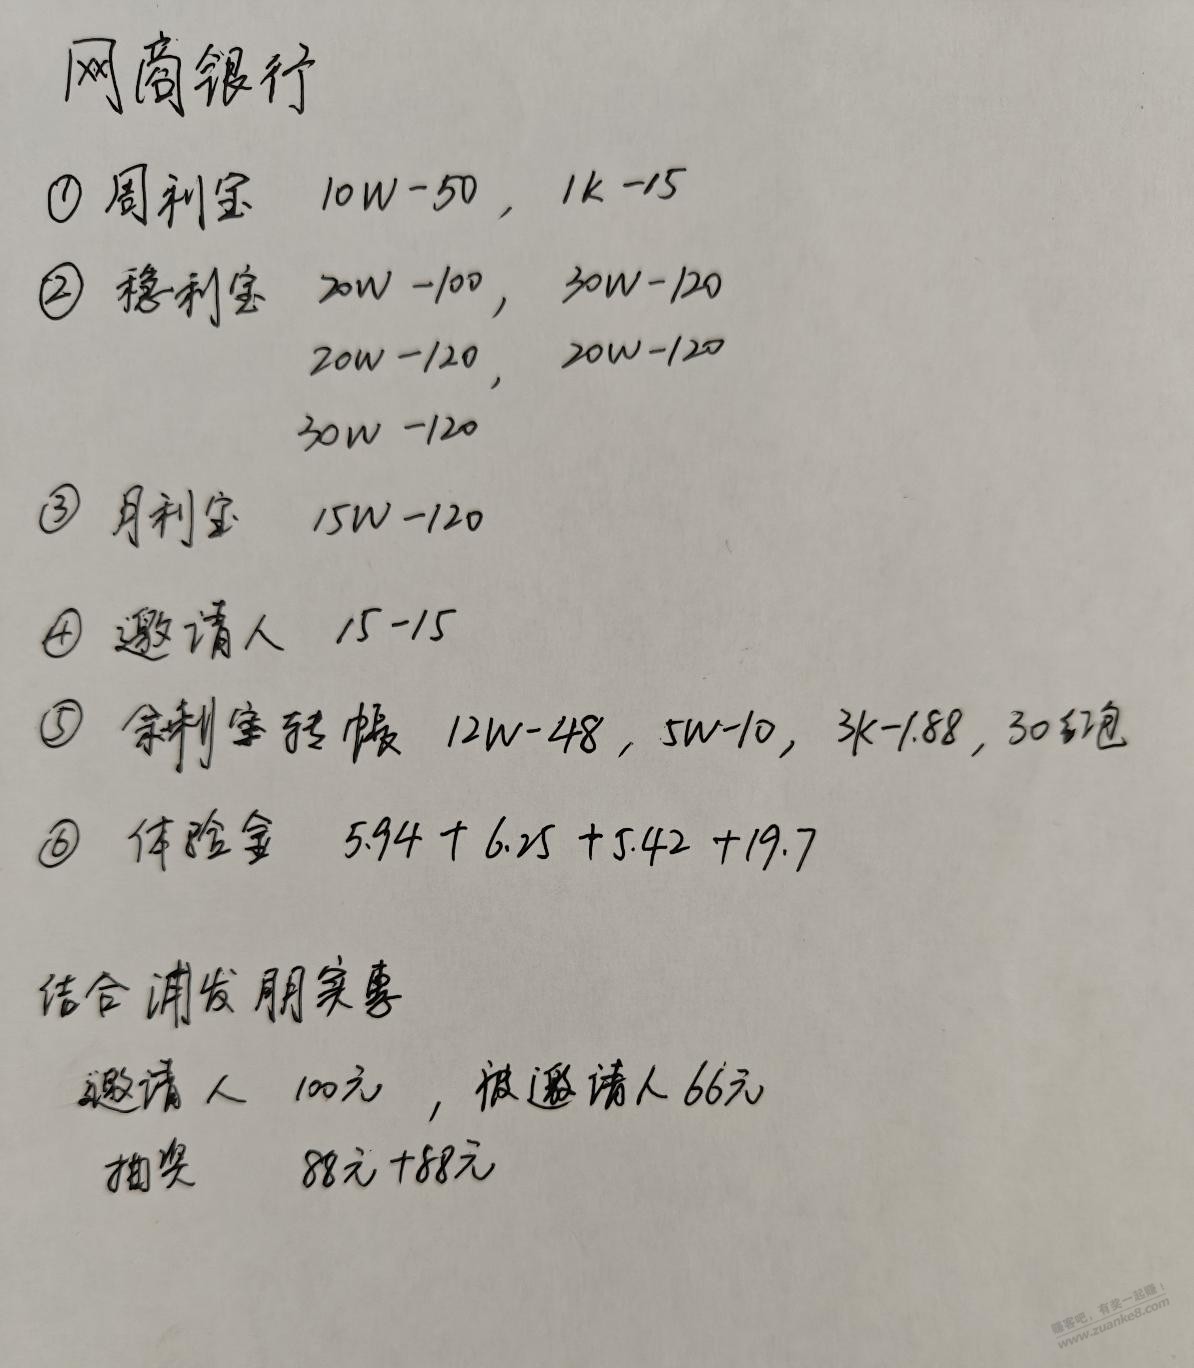 网商银行
① 周利宝 10W-50, 1K-15
② 稳利宝 20W-100, 30W-120
20W-120, 20W-120
30W-120
③ 月利宝 15W-120
④ 邀请人 15-15
⑤ 余利宝转帐 12W-48, 5W-10, 3K-1.88, 30红包
⑥ 体验金 5.94+6.25+5.42+19.7
结合浦发朋实惠
邀请人 100元, 被邀请人66元
抽奖 88元+88元
赚客吧，有奖一起赚！
www.zuanke8.com